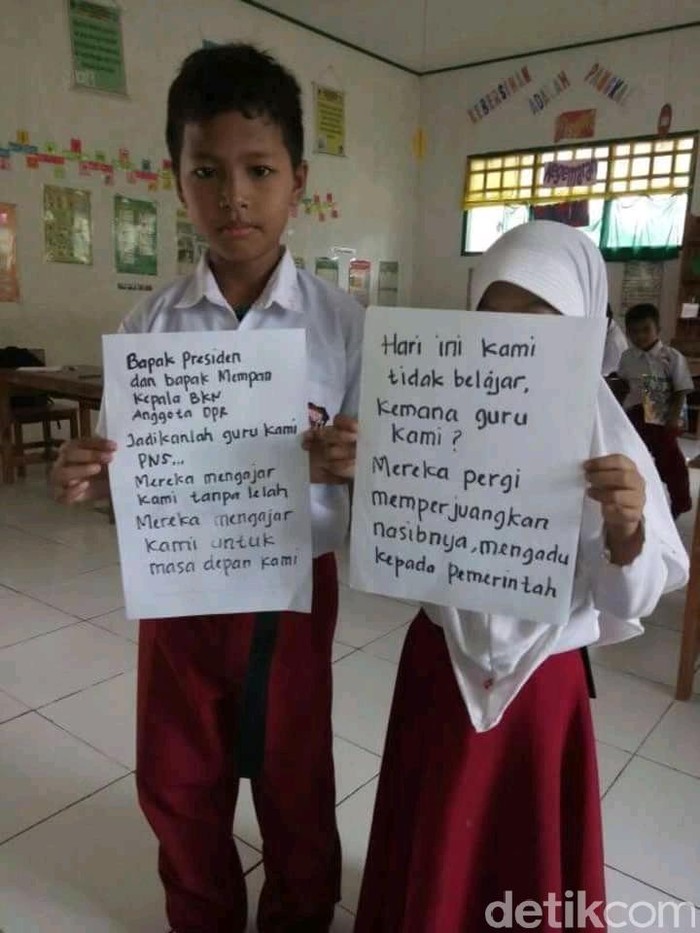 KEBERSIHAN ADALAH PANGKAL
Bapak Presiden
dan bapak Menpan
Kepala BKN
Anggota DPR
Jadikanlah guru kami
PNS...
Mereka mengajar
kami tanpa lelah
Mereka mengajar
kami untuk
masa depan kami
Hari ini kami
tidak belajar,
Kemana guru
kami?
Mereka pergi
memperjuangkan
nasibnya, mengadu
kepada pemerintah
detikcom